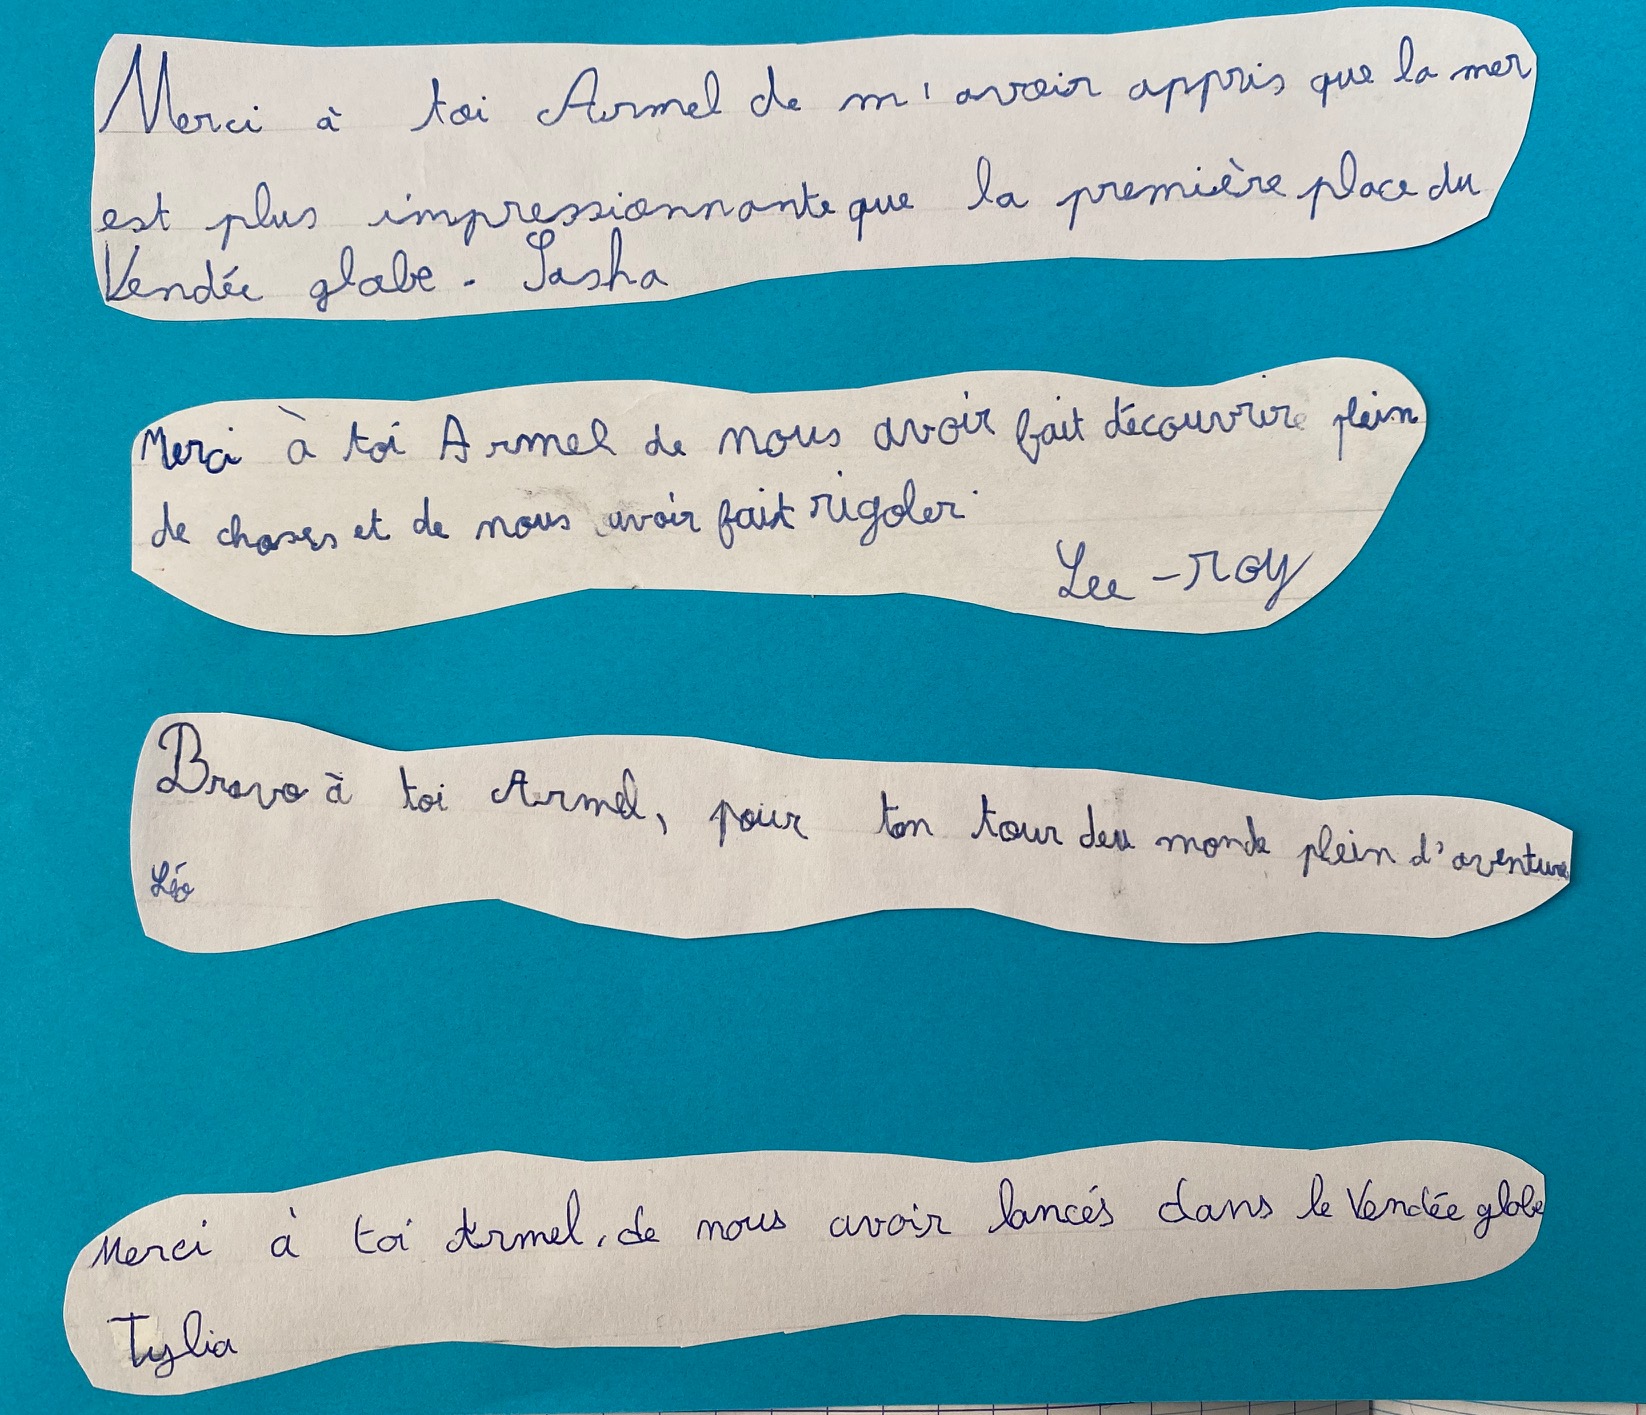 Merci à toi Armel de m'avoir appris que la mer
est plus impressionnante que la première place du
Vendée globe. Sasha
Merci à toi Armel de nous avoir fait découvrire plein
de choses et de nous avoir fait rigoler.
Lee-roy
Bravo à toi Armel, pour ton tour du monde plein d'aventure
Léo
Merci à toi Armel, de nous avoir lancés dans le Vendée globe
Tylia